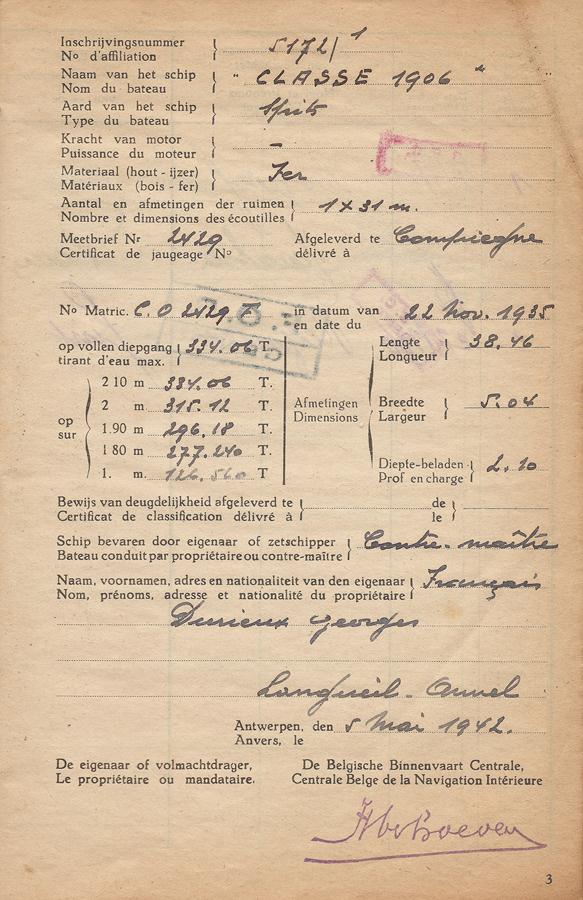 Inschrijvingsnummer
No d'affiliation
5172/1
Naam van het schip
Nom du bateau
" CLASSE 1906 "
Aard van het schip
Type du bateau
Spits
Kracht van motor
Puissance du moteur
-
Materiaal (hout - ijzer)
Matériaux (bois - fer)
Fer
Aantal en afmetingen der ruimen
Nombre et dimensions des écoutilles
1 x 31 m.
Meetbrief Nr 2429
Certificat de jaugeage No
Afgeleverd te Compiegne
délivré à
No Matric. C.O 2429 F
in datum van 22 Nov. 1935
en date du
op vollen diepgang 334.06 T.
tirant d'eau max.
op
sur
2 10 m 334.06 T.
2 m 315.12 T.
1.90 m 296.18 T.
1 80 m 277.240 T.
1. m. 126.560 T
Afmetingen
Dimensions
Lengte
Longueur
38.46
Breedte
Largeur
5.04
Diepte-beladen
Prof en charge
2.10
Bewijs van deugdelijkheid afgeleverd te
Certificat de classification délivré à
de
le
Schip bevaren door eigenaar of zetschipper
Bateau conduit par propriétaire ou contre-maître
Contre-maître
Naam, voornamen, adres en nationaliteit van den eigenaar
Nom, prénoms, adresse et nationalité du propriétaire
Français
Durieux Georges
Longueil-Annel
Antwerpen, den 5 Mai 1942.
Anvers, le
De eigenaar of volmachtdrager,
Le propriétaire ou mandataire.
De Belgische Binnenvaart Centrale,
Centrale Belge de la Navigation Intérieure
3